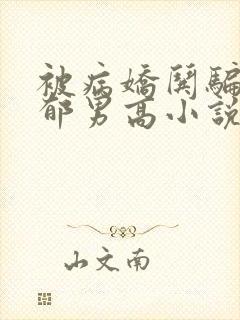 被病嬌閨騙
郁男高小說
山文南